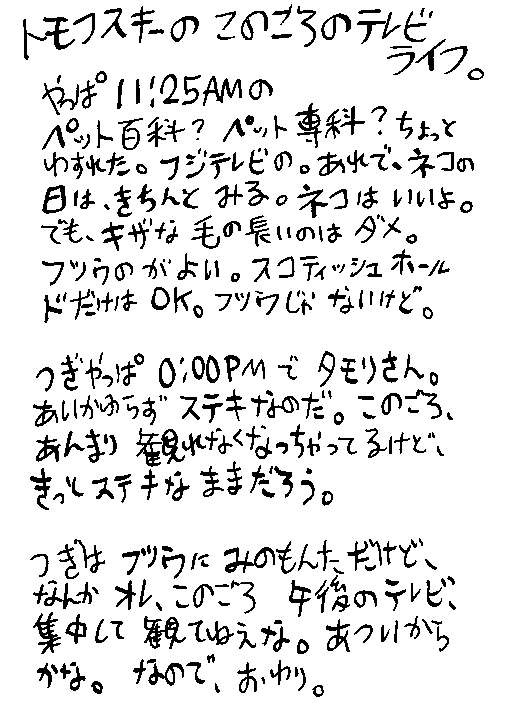 トモフスキーの このごろのテレビ
ライフ。
やっぱ 11:25AMの
ペット百科? ペット専科?ちょっと
わすれた。フジテレビの。あれで、ネコの
日は、きちんと みる。ネコは いいよ。
でも、キザな 毛の長いのは ダメ。
フツウの がよい。スコティッシュ ホール
ドだけは OK。フツウじゃ ないけど。
つぎやっぱ 0:00PMで タモリさん。
あいかわらず ステキなのだ。このごろ、
あんまり 観れなくなっちゃってるけど、
きっとステキな ままだろう。
つぎは フツウに みのもんただけど、
なんか オレ、このごろ 午後のテレビ、
集中して 観てねえな。あついから
かな。なので、おわり。